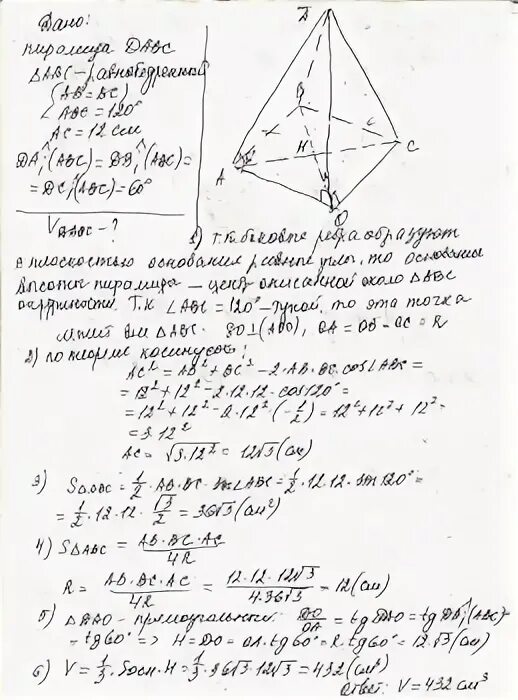 Дано:
пирамида DABC
△ABC - равнобедренный
(AB = BC)
∠ABC = 120°
AC = 12 см
DA;^(ABC) = DB;^(ABC) =
= DC;^(ABC) = 60°
V_DABC - ?
D
B
H
C
A
O
1) т.к. боковые ребра образуют
с плоскостью основания равные углы, то основание
высоты пирамиды - центр описанной около △ABC
окружности. Т.к ∠ABC = 120° - тупой, то эта точка
△ABC. ⊥(ABC), OA = OB = OC = R
2) по теореме косинусов:
AC² = AB² + BC² - 2·AB·BC·cos∠ABC =
= 12² + 12² - 2·12·12·cos120° =
= 12² + 12² - 2·12²·(-1/2) = 12² + 12² + 12² =
= 3·12²
AC = √3·12² = 12√3 (см)
3) S△ABC = 1/2·AB·BC·sin∠ABC = 1/2·12·12·sin120° =
= 1/2·12·12·√3/2 = 36√3 (см²)
4) S△ABC = AB·BC·AC/4R
R = AB·BC·AC/4R = 12·12·12√3/4·36√3 = 12 (см)
5) △DAO - прямоугольный: DO/OA = tg DAO = tg DA;^(ABC) =
= tg60° => H = DO = OA·tg60° = R·tg60° = 12√3 (см)
6) V = 1/3·Sосн·H = 1/3·36√3·12√3 = 432 (см³)
Ответ: V = 432 см³